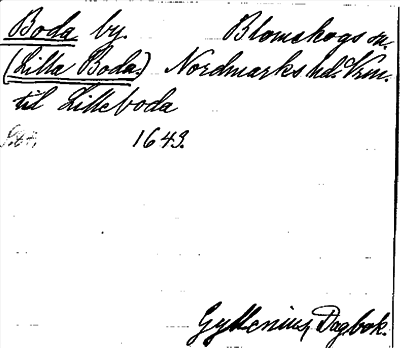 Boda by. Blomskogs sn.
(Lilla Boda) Nordmarks hd. Vrm.
til Lilleboda
1643.
Gyllenius, Dagbok.